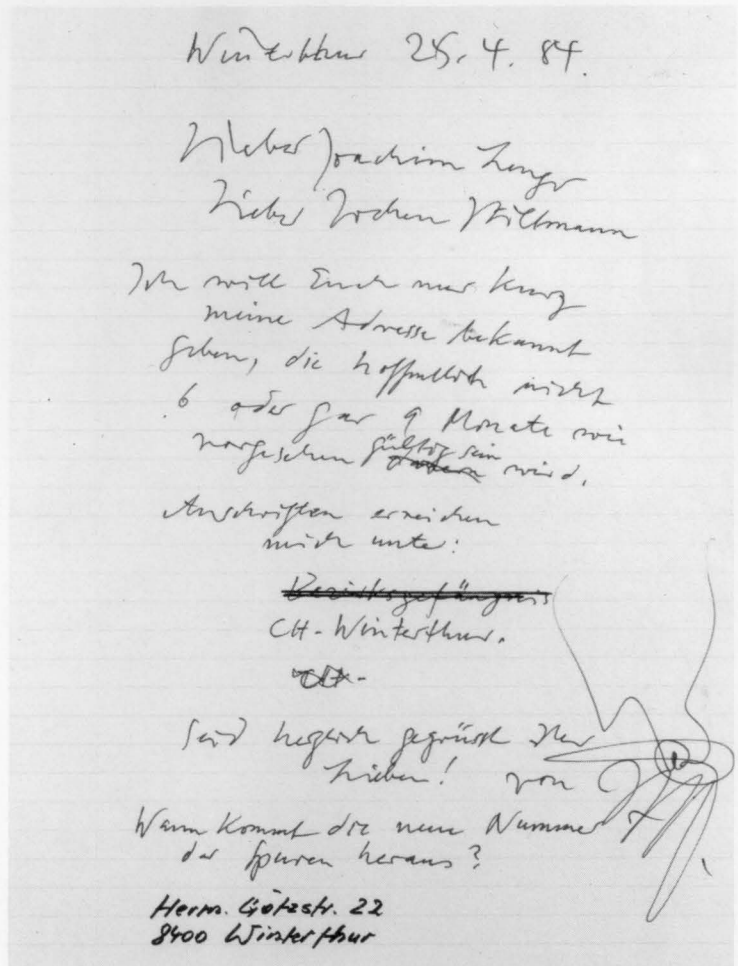 Winterthur 25. 4. 84.
Lieber Joachim Lengo
Lieber Jochen Hiltmann
Ich will Euch nur kurz
meine Adresse bekannt
geben, die hoffentlich nicht
6 oder gar 9 Monate wie
vorgesehen gültig sein wird.
Anschriften erreichen
mich unte:
Bezirksgefängnis
CH-Winterthur.
Seid herzlich gegrüsst Ihr
Lieben! von
Wann kommt die neue Nummer
der Spuren heraus?
Herm. Götzstr. 22
8400 Winterthur